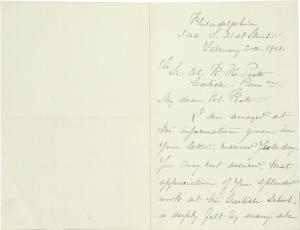 Philadelphia
S. 21st Street
February 2nd 1901.
To
Lt. Col. R. H. Pratt
Carlisle - Penn
My dear Col. Pratt -
I am amazed at
the information given in
your letter, received yesterday.
You may rest assured, that
appreciation of your splendid
work at the Carlisle School,
is deeply felt by many, who